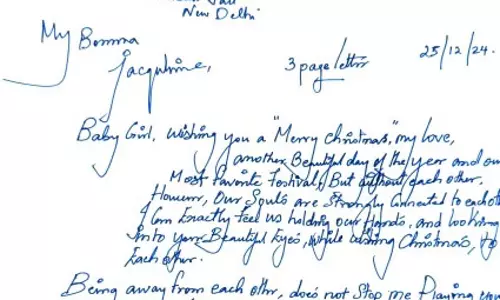 New Delhi
My Bomma
Jacquline,
3 page letter
25/12/24.
Baby Girl, wishing you a "Merry christmas," my love,
another Beautiful day of the year and our
Most Favorite Festival, But without each other.
However, Our Souls are Strongly Connected to each oth
I Can Exactly feel us holding our Hands, and looking
into your Beautiful Eyes, while wishing Christmas, to
Each other.
Being away from each other, does not Stop me Playing you